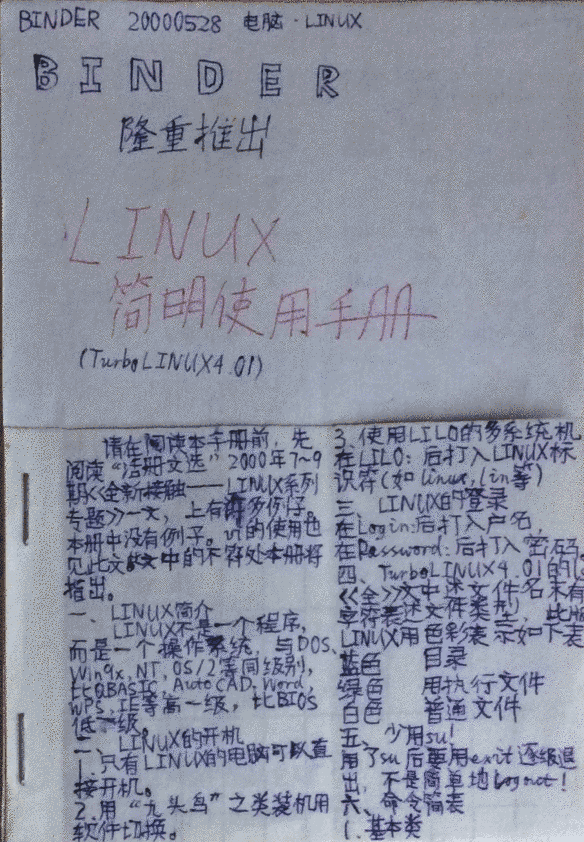 BINDER 20000528 电脑·LINUX
BINDER
隆重推出
LINUX
简明使用手册
(TurboLINUX4.01)
请在阅读本手册前,先
阅读“活册文选”2000年7~9
期《全新接触——LINUX系列
专题》一文,上有许多例子,
本册中没有例子。vi的使用也
见此文。文中的不符处本册将
指出。
一、LINUX简介
LINUX不是一个程序,
而是一个操作系统,与DOS、
Win9x,NT,OS/2等同级别,
比QBASIC,AutoCAD,Word,
WPS,IE等高一级,比BIOS
低一级。
二、LINUX的开机
1.只有LINUX的电脑可以直
接开机。
2.用“九头鸟”之类装机用
软件切换。
3.使用LILO的多系统机
在LILO:后打入LINUX标
识符(如linux,lin等)
三、LINUX的登录
在Login:后打入户名,
在Password:后打入密码。
四、TurboLINUX4.01的
《全》文中述文件名末有
字符表述文件类型,此版
LINUX用色彩表示如下表
蓝色 目录
绿色 用执行文件
白色 普通文件
五、少用su!
用了su后要用exit逐级退
出,不是简单地Logout!
六、命令简表
1.基本类